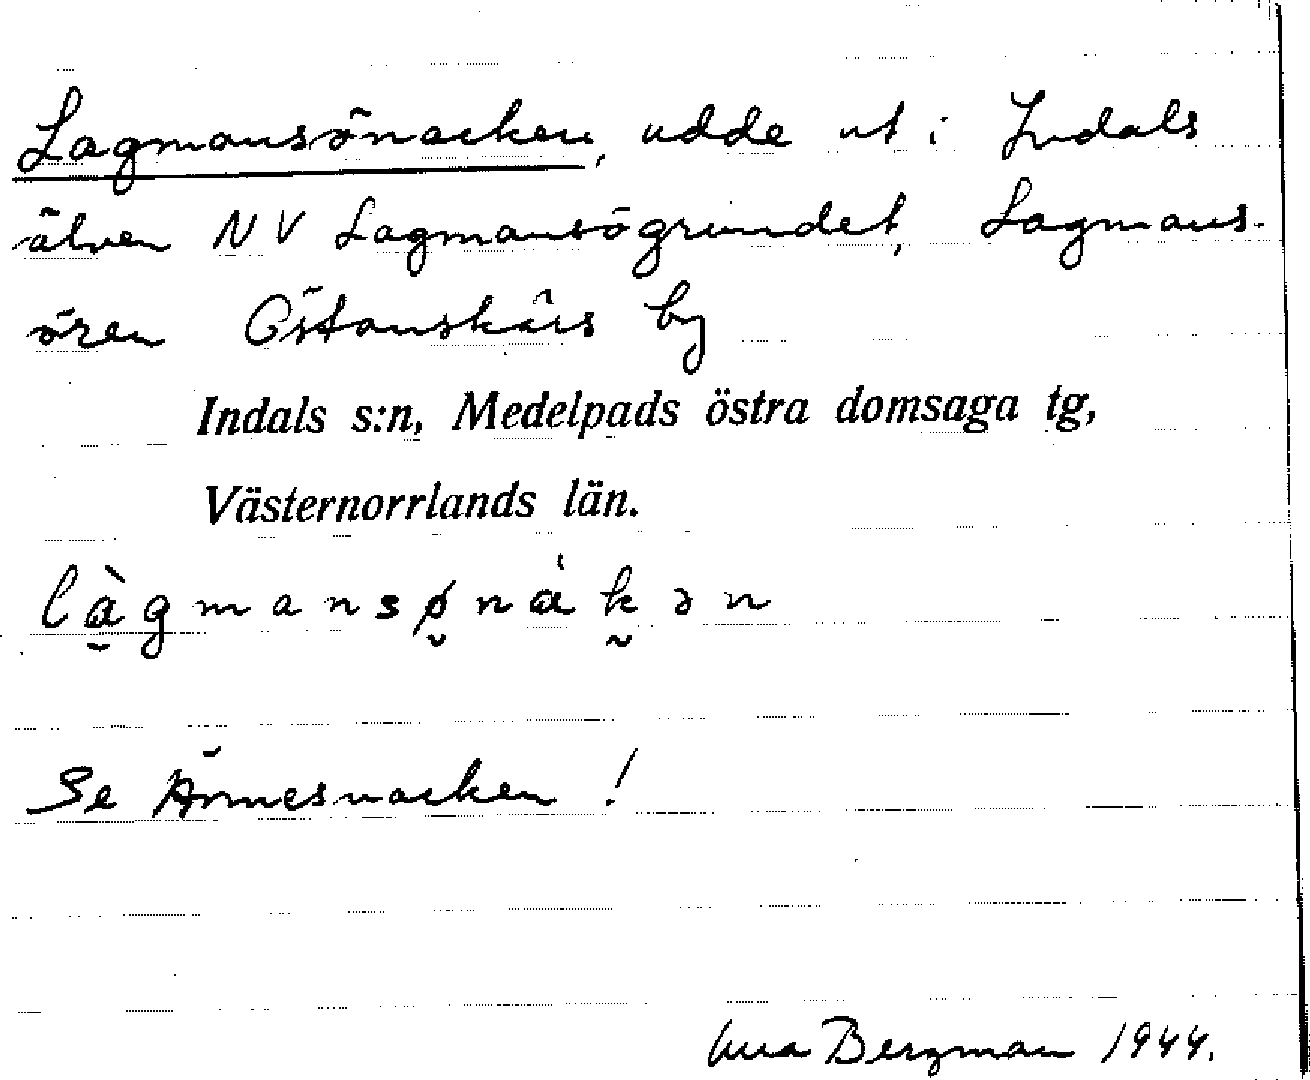 Lagmansönacken, udde ut i Indals
älven NV Lagmansögrundet, Lagmans-
ören Östanskärs by
Indals s:n, Medelpads östra domsaga tg,
Västernorrlands län.
làgmansønákən
Se Ärnnesnacken!
Bergman 1944.